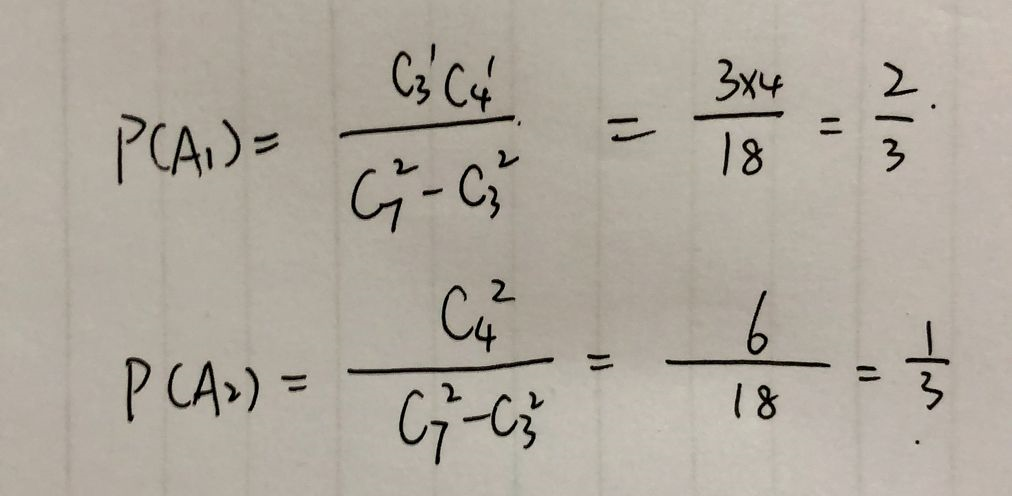 P(A₁) = C₃¹C₄¹ / (C₇² - C₃²) = 3×4 / 18 = 2/3.
P(A₂) = C₄² / (C₇² - C₃²) = 6 / 18 = 1/3